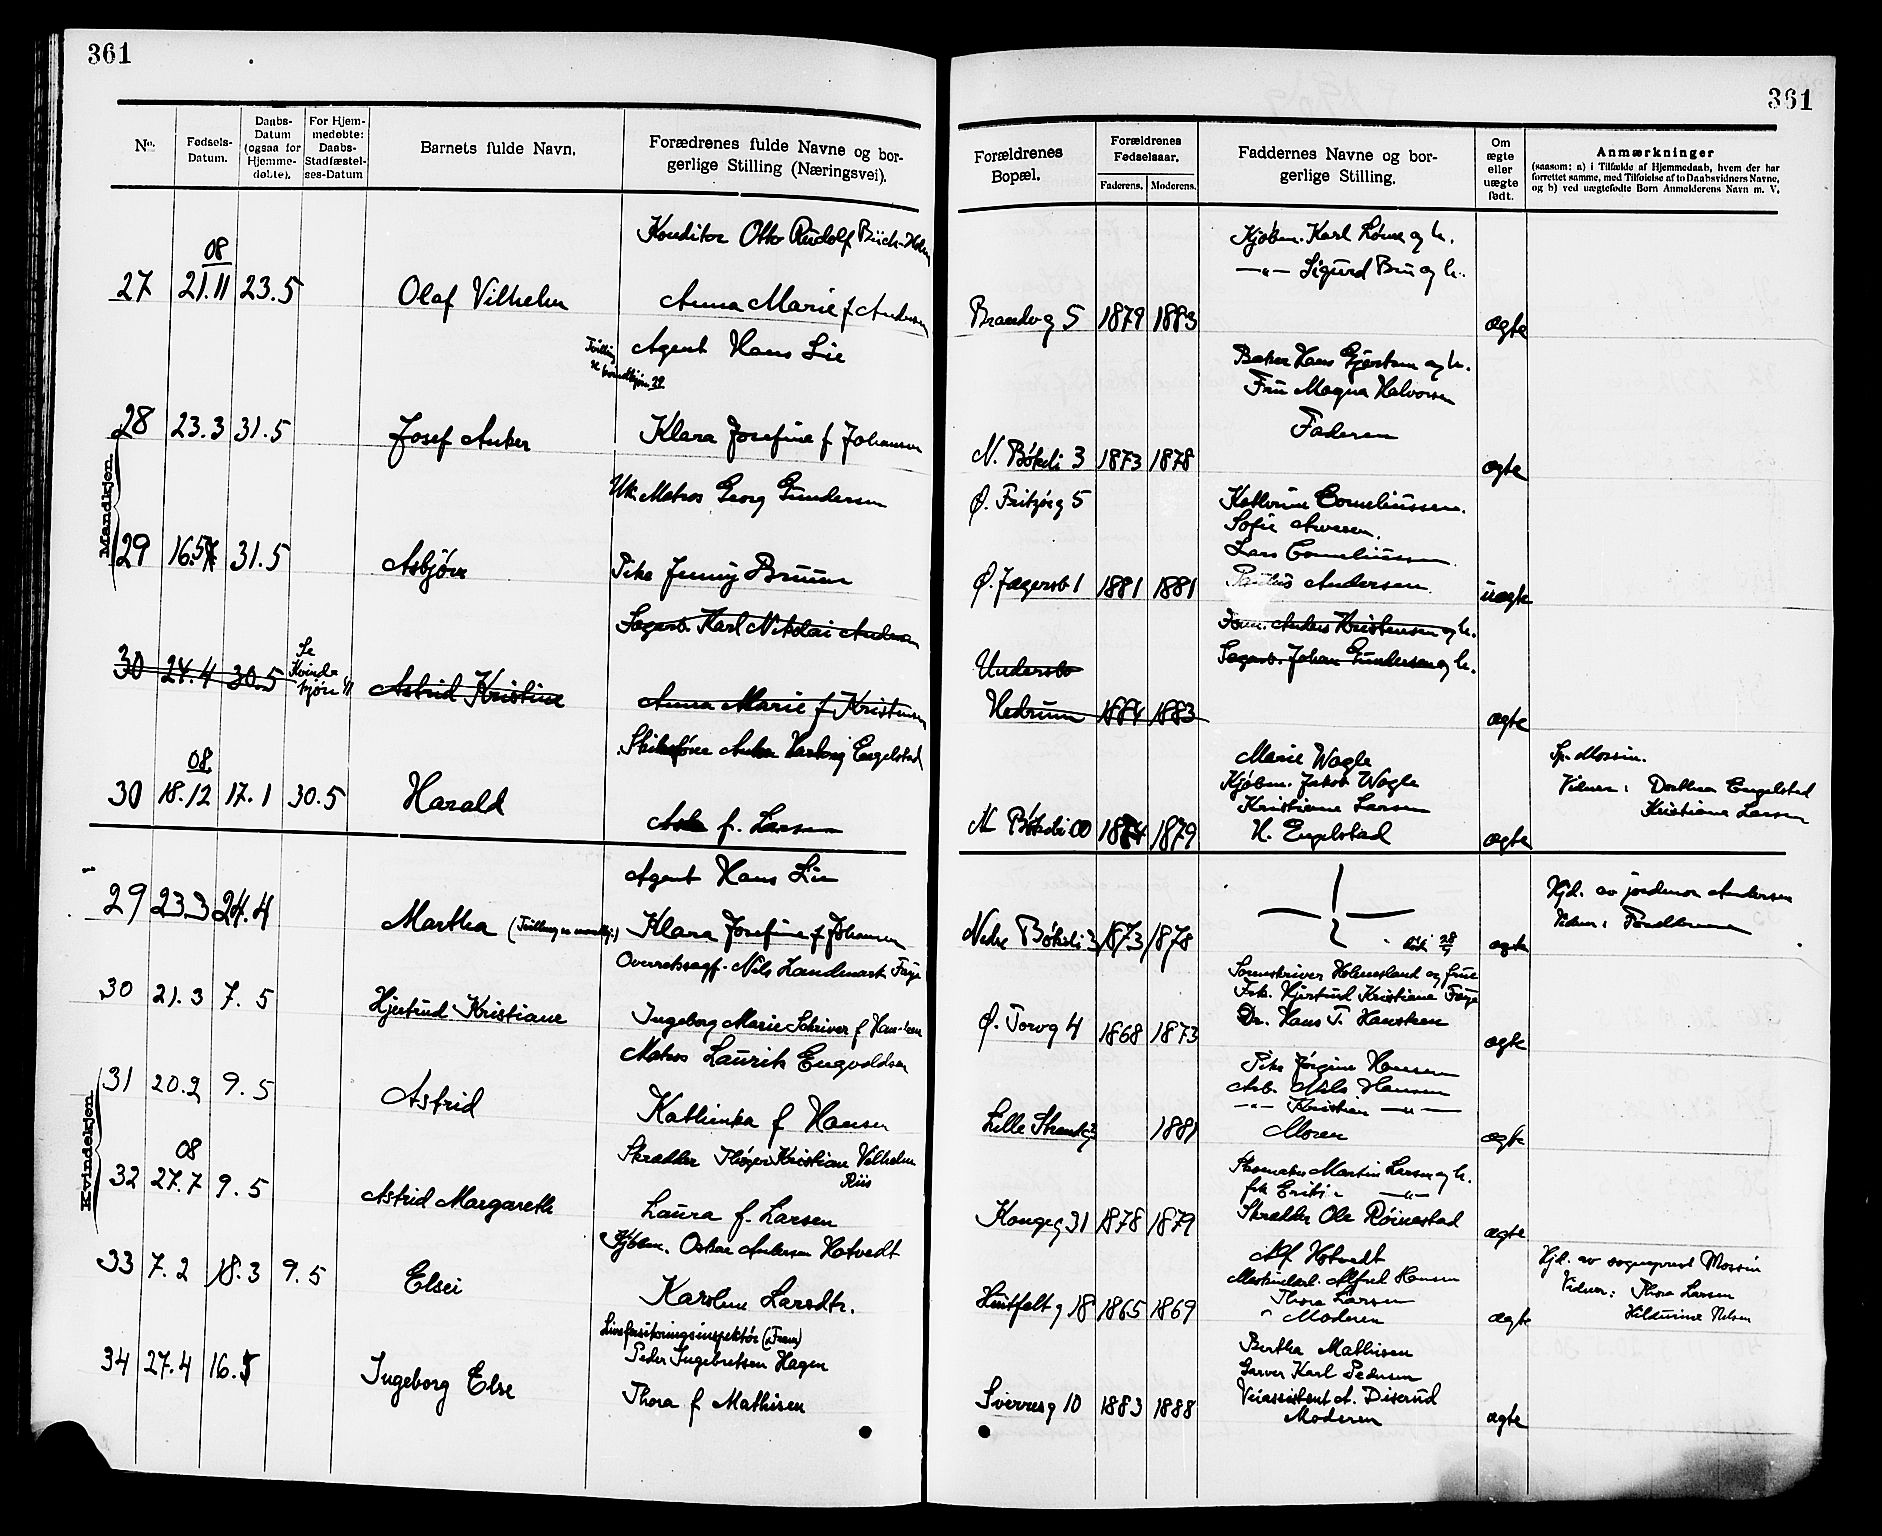 361
361
No.
Fødsels-
Datum.
Daabs-
Datum
(ogsaa for
Hjemme-
døbte).
For Hjem-
medøbte:
Daabs-
Stadfæstel-
ses-Datum
Barnets fulde Navn.
Forædrenes fulde Navne og bor-
gerlige Stilling (Næringsvei).
Forældrenes
Bopæl.
Forældrenes
Fødselsaar.
Faderens. Moderens.
Faddernes Navne og bor-
gerlige Stilling.
Om
ægte
eller
uægte
født.
Anmærkninger
(saasom: a) i Tilfælde af Hjemmedaab, hvem der har
forrettet samme, med Tilføielse af to Daabsvidners Navne,
og b) ved uægtefødte Børn Anmelderens Navn m. V.
Mandkjøn.
Konditor Otto Rudolf Büch-Holm
08
27 21.11 23.5 Olaf Vilhelm
Anna Marie f Andersen
Brandvg 5 1879 1883
Kjøbm. Karl og h.
—"— Sigurd Bru og h.
ægte
Tvilling
Agent Hans Lie
28 23.3 31.5 Josef Anker
Klara Josefine f Johansen
N. Bøkeli 3 1873 1878
Baker Hans Gjertsen og h.
Fru Magna Halvorsen
Faderen
ægte
Uk. Matros Georg Gundersen
29 16.5 31.5 Asbjørn
Pike Jenny Bruun
Ø. Fritzøeg 5
Ø. Jegersb 1 1881 1881
Kathrine Corneliussen.
Sofie
Lars Corneliussen
Paulus Andersen
uægte
Sagarb. Karl Nikolai Andersen
30 24.4 30.5
Se
Kvinde
kjøn 41
Astrid Kristine
Anna Marie f Kristensen
Undersbo
Hedrum 1884 1883
Anders Kristensen og h.
Sagarb. Johan Gundersen og h.
ægte
08
30 18.12 17.1 30.5 Harald
Anker Hartvig Engelstad
f. Larsen
N Bøkeli 00 1874 1879
Marie Wagle
Kjøbm. Jakob Wagle
Kristiane Larsen
H. Engelstad
ægte
Sp. Mossin.
Vidner: Dorthea Engelstad
Kristiane Larsen
Kvindekjøn.
Agent Hans Lie
29 23.3 24.4 Martha (Tvilling m mandkj.)
Klara Josefine f Johansen
Nedre Bøkeli 3 1873 1878
ægte
Hjd. av jordmor Andersen
Vidner: Forældrene
Overretssagf. Nils Landmark Faye
30 21.3 7.5 Hjertrud Kristiane
Ingeborg Marie Schriver f Hansteen
Ø. Torvg 4 1868 1873
Sorenskriver Holmesland og frue
Frk. Hjertrud Kristiane Faye
Dr. Hans T. Hansteen
ægte
Matros Laurits Engvoldsen
31 20.2 9.5 Astrid
Kathinka f Hansen
Lille Strandg 1881
Pike Jørgine Hansen
Arb. Nils Hansen
—"— Kristian —"—
Moren
ægte
Skrædder Thøger Kristian Vilhelm
Riis
08
32 27.7 9.5 Astrid Margareth
Laura f. Larsen
Kongeg 31 1878 1879
Skomaker Martin Larsen og h.
—"—
Skrædder Ole Røinestad
ægte
Kjøbm. Oskar Andersen Hotvedt
33 7.2 18.3 9.5 Elsei
Karoline Larsdtr.
Huitfeltg 18 1865 1869
Alf Hotvedt
Maskinarb. Alfred Hansen
Thora Larsen
Moderen
ægte
Hjd. av sogneprest Mossin
Vidner: Thora Larsen
Livsforsikringsinspektør (Fram)
Peder Ingebretsen Hagen
34 27.4 16.5 Ingeborg Else
Thora f Mathisen
Sverresg 10 1883 1888
Bertha Mathisen
Garver Karl Pedersen
Veiassistent A. Diserud
Moderen
ægte